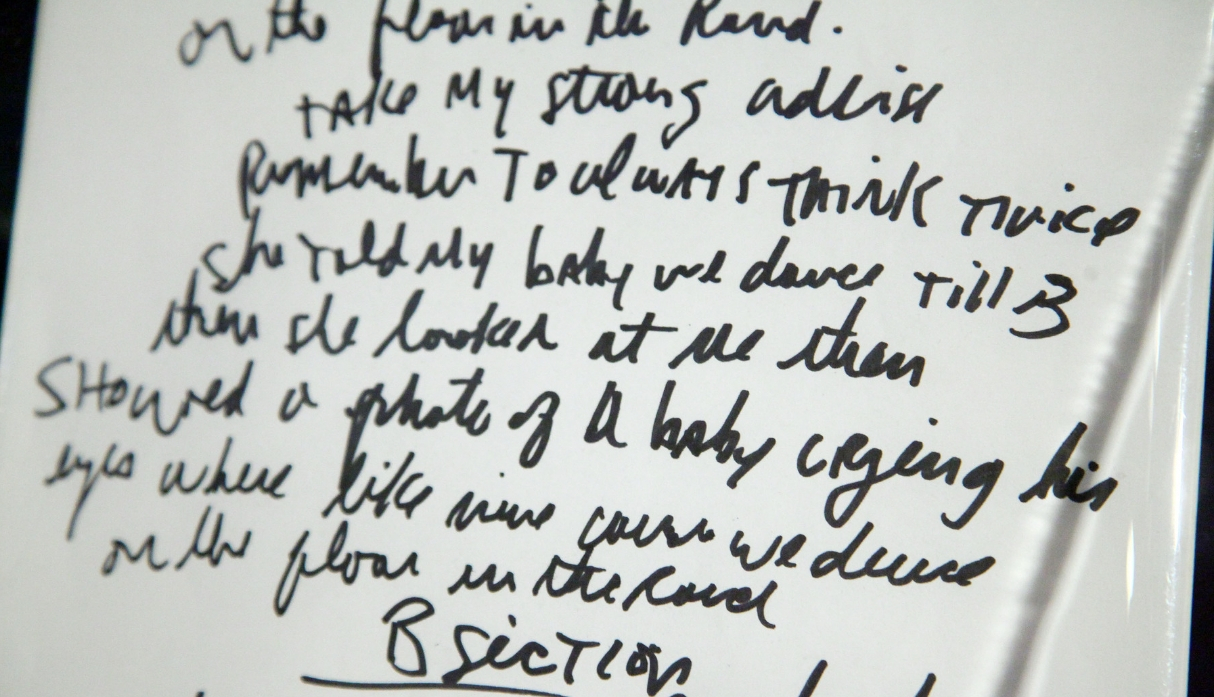 on the floor in the Round.
TAKE My strong advise
Remember To always THINK Twice
She Told My baby we dance Till 3
then she looked at me then
SHowed a photo of A baby crying his
eyes where like mine cause we dance
on the floor in the Round
B SecTion